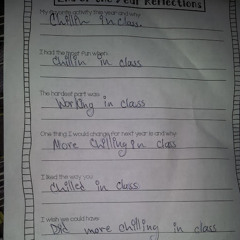 End of the Year Reflections
My favorite activity this year and why:
Chillin in class.
I had the most fun when:
Chillin in class
The hardest part was:
Working in class
One thing I would change for next year is and why:
More chilling in class
I liked the way you
Chilled in class
I wish we could have
Did more chilling in class